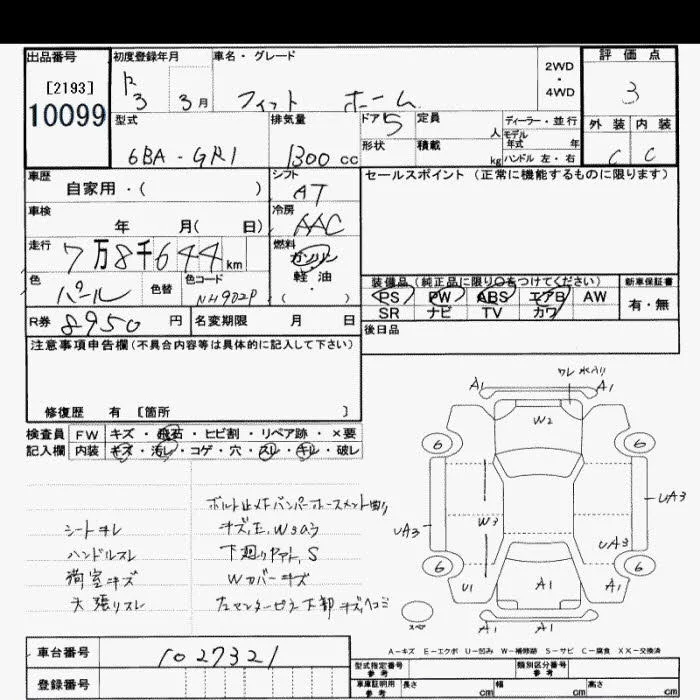 出品番号 初度登録年月 車名・グレード 評価点
[2193] R3 3月 フィット ホーム 2WD・4WD 3
10099
型式 排気量 ドア 5 定員 人 ディーラー・並行 外装 内装
6BA-GR1 1300cc 形状 積載 kg モデル年式 年 C C
ハンドル 左・右
車歴 シフト セールスポイント(正常に機能するものに限ります)
自家用・( ) AT
車検 冷房
年 月( 日) AAC
走行 燃料
7万8千644km ガソリン
軽油・( )
色 色替 色コード 装備品(純正品に限り○をつけてください) 新車保証書
パール NH902P PS PW ABS エアB AW 有・無
SR ナビ TV カワ
R券 8950円 名変期限 月 日 後日品
注意事項申告欄(不具合内容等は具体的に記入して下さい)
修復歴 有 [箇所 ]
検査員 FW キズ・飛石・ヒビ割・リペア跡・×要
記入欄 内装 キズ・汚レ・コゲ・穴・スレ・キレ・破レ
A1 ワレ 水入り A1
W2
6 6
UA3 W3 UA3 UA3
6 6
U1 A1 A1
スペア A1 A1
シートキレ
ハンドルスレ キズ,E,W3あり
荷室キズ 下廻り S
天張リスレ Wカバーキズ
左センターピラー下部 キズヘコミ
A-キズ E-エクボ U-凹み W-補修跡 S-サビ C-腐食 XX-交換済
車台番号 1027321 型式指定番号 参考 類別区分番号 参考
登録番号 車庫証明用 参考 長さ cm 幅 cm 高さ cm